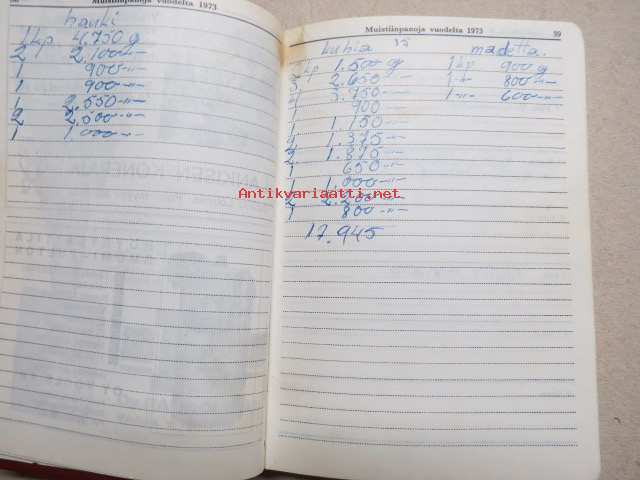 Muistiinpanoja vuodelta 1973
hauki
1 kp. 4.750 g
2 2.100 -"-
1 900 -"-
1 900 -"-
1 2.550 -"-
2 2.500 -"-
1 1.000 -"-
Muistiinpanoja vuodelta 1973 59
kuhia 15 madetta.
kp 1.500 g 1 kp 900 g
3 2.650 -"- 1 -"- 800 -"-
4 3.750 -"- 1 -"- 600 -"-
1 900 -"-
1 1.150 -"-
1.375 -"-
2 1.375 -"-
1 650 -"-
1 1.000 -"-
2 2.200 -"-
1 800 -"-
17.945
Antikvariaatti.net